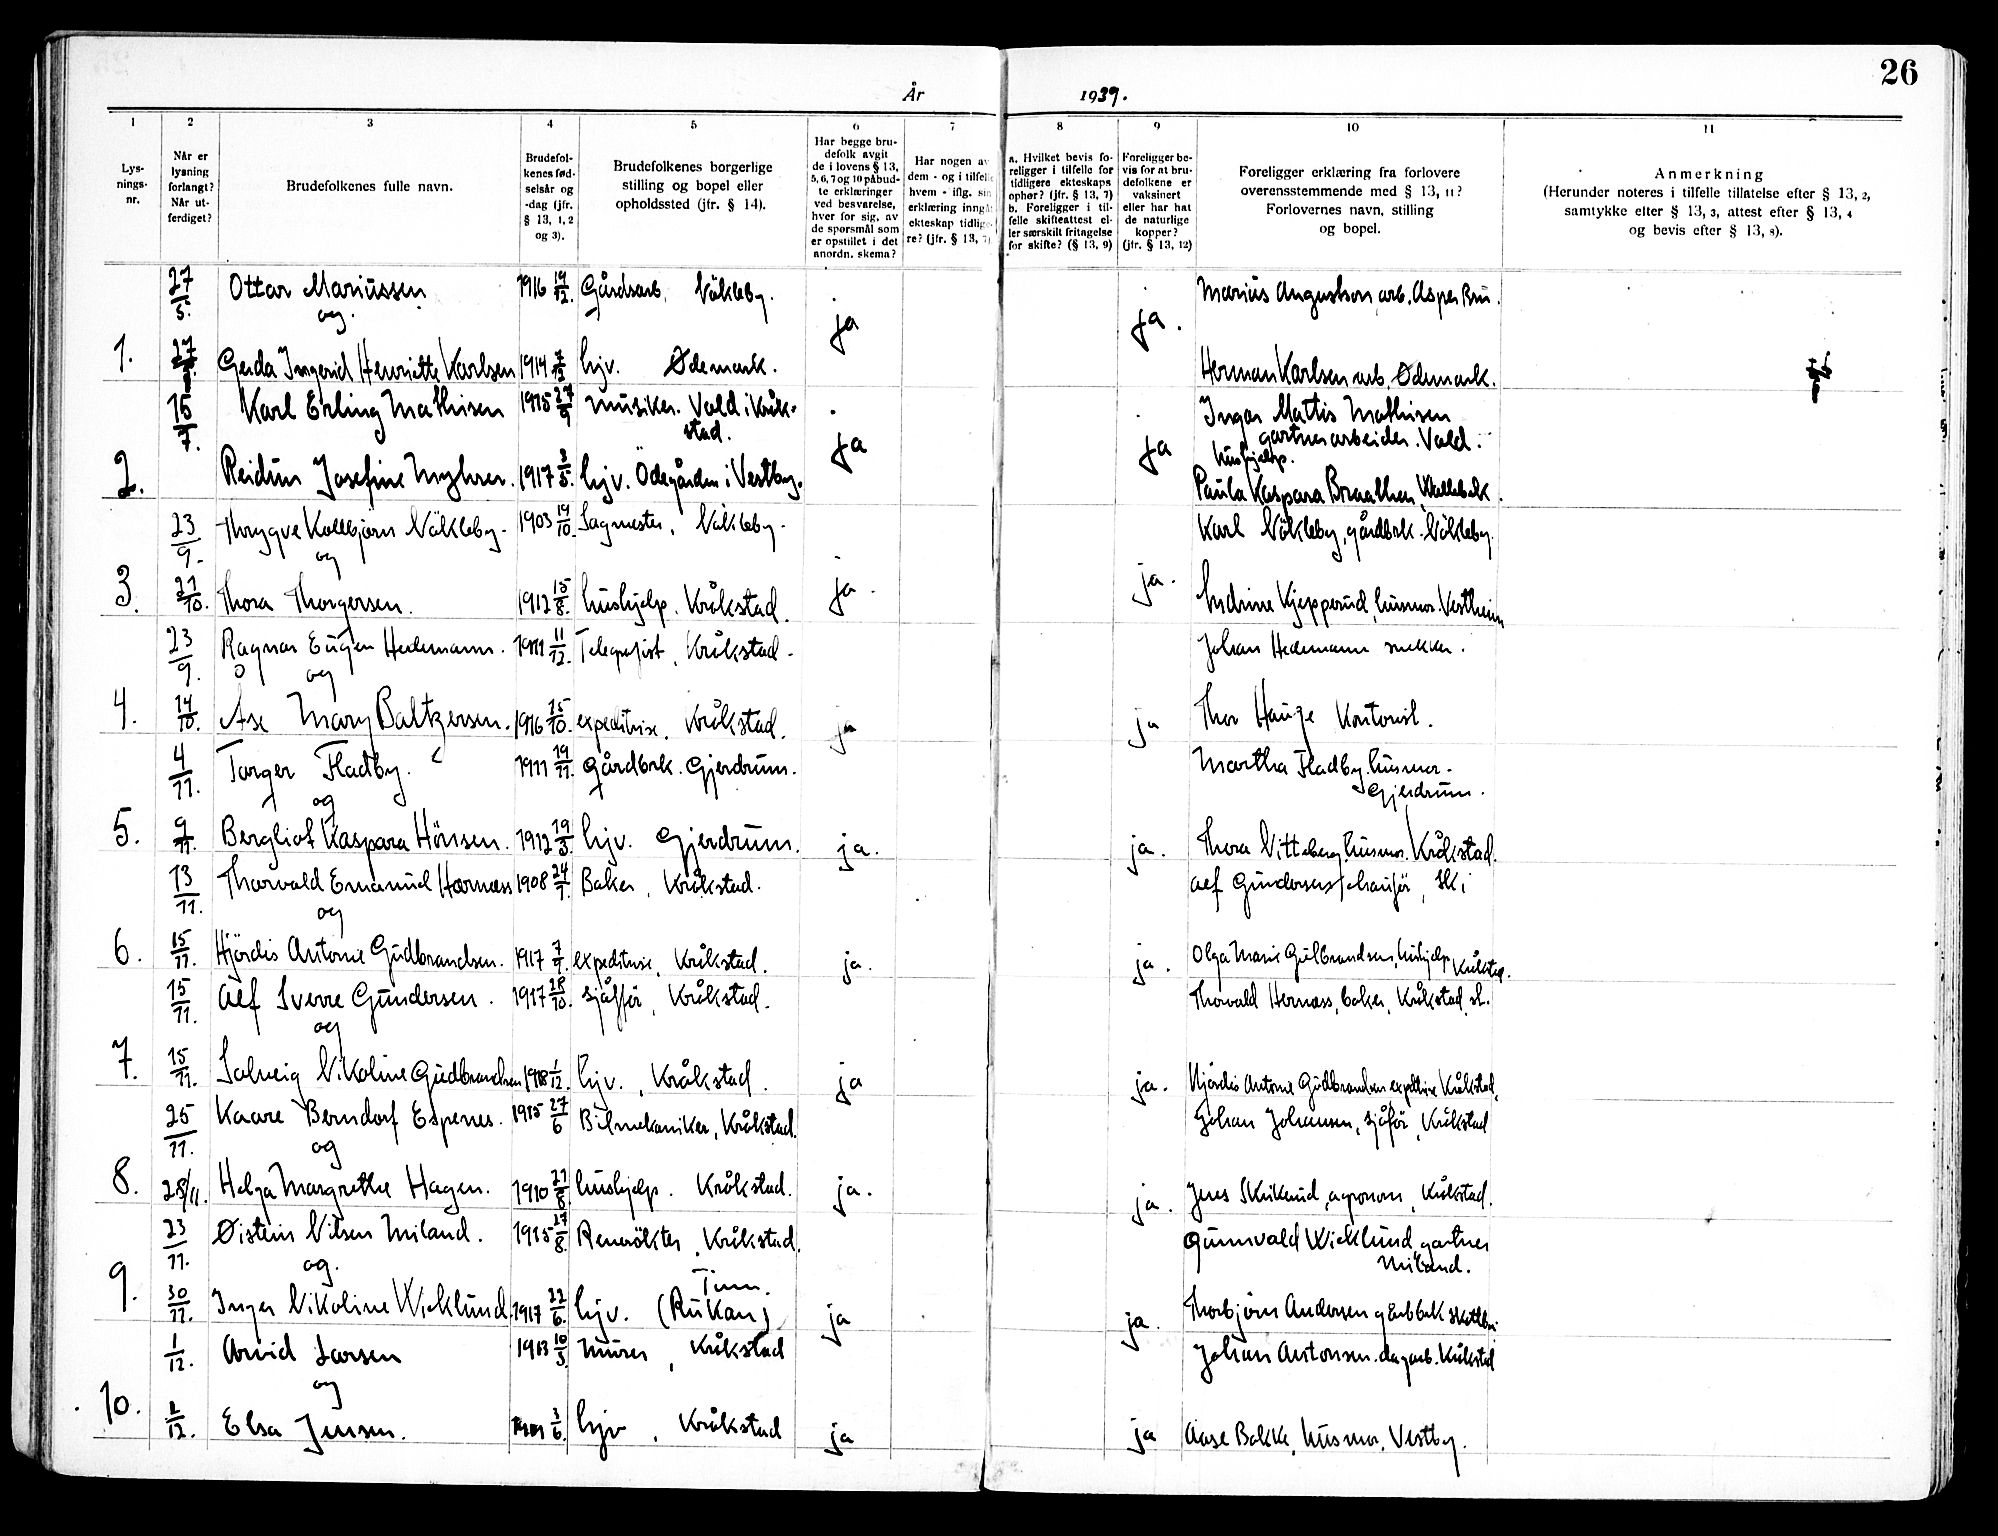 26
År 1939.
1 2 3 4 5 6 7 8 9 10 11
Lys-
nings-
nr.
Når er
lysning
forlangt?
Når ut-
ferdiget?
Brudefolkenes fulle navn.
Brudefol-
kenes fød-
selsår og
-dag (jfr.
§ 13, 1, 2
og 3).
Brudefolkenes borgerlige
stilling og bopel eller
opholdssted (jfr. § 14).
Har begge bru-
defolk avgit
de i lovens § 13,
5, 6, 7 og 10 påbud-
te erklæringer
ved besvarelse,
hver for sig, av
de spørsmål som
er opstillet i det
anordn. skema?
Har nogen av
dem - og i tilfelle
hvem - iflg. sin
erklæring inngåt
ekteskap tidlige-
re? (jfr. § 13, 7)
a. Hvilket bevis fo-
religger i tilfelle for
tidligere ekteskaps
ophør? (jfr. § 13, 7)
b. Foreligger i til-
felle skifteattest el-
ler særskilt fritagelse
for skifte? (§ 13, 9)
Foreligger be-
vis for at bru-
defolkene er
vaksinert
eller har hat
de naturlige
kopper?
(jfr. § 13, 12)
Foreligger erklæring fra forlovere
overensstemmende med § 13, 11?
Forlovernes navn, stilling
og bopel.
Anmerkning
(Herunder noteres i tilfelle tillatelse efter § 13, 2,
samtykke efter § 13, 3, attest efter § 13, 4
og bevis efter § 13, 8).
27/5. Ottar Mariussen 1916 19/12. Gårdsarb. Näkleby. Marius Augustson arb. Asper Bru.
og. ja ja.
1. 27 Gerda Ingerid Henriette Karlsen 1914 7/12 hjv. Ødemark. Herman Karlsen arb. Ødemark.
15/7. Karl Erling Mathisen 1915 27/9 Musiker. Vold i Kråk-
stad. Ingar Mattis Mathisen
gartnerarbeider. Vold.
ja ja
2. Reidun Josefine Myhrer. 1917 3/5. hjv. Ödegården i Vestby. hushjelp.
Paula Kaspara Braathen,
23/9. Thrygve Kolbjørn Näkleby. 1903 19/10. Sagmester, Näkleby. Karl Näkleby, gårdbrk. Näkleby.
og
3. 21/10. Thora Thorgersen. 1912 15/8. hushjelp. Kråkstad. ja. ja. Kjepperud, husmor. Vestheim
23/9. Ragnar Eugen Hedemann. 1911 11/12. Telegrafist, Kråkstad. Johan Hedemann snekker.
og
4. 14/10. Åse Mary Baltzersen. 1916 15/10. expeditrise. Kråkstad. ja ja Thor Hauge Kontorist.
4/11. Torger Fladby. 1911 19/11. gårdbrk. Gjerdrum. Martha Fladby, husmor.
Gjerdrum.
og
5. 9/11. Bergliot Kaspara Hönsen. 1912 19/3. hjv. Gjerdrum. ja. ja. Thora Vitteberg, husmor. Kråkstad.
13/11. Thorvald Emanuel Hærnæss 1908 24/9. Baker, Kråkstad. Alf Gundersen, chauför, Ski
og
6. 15/11. Hjördis Antonie Gudbrandsen. 1917 7/9. expeditrise, Kråkstad. ja. ja. Olga Marie Gulbrandsen, hushjelp Kråkstad.
15/11. Alf Sverre Gundersen. 1917 28/10. sjåffør, Kråkstad. Thorvald Hernæss, baker, Kråkstad st.
og
7. 15/11. Solveig Nikoline Gudbrandsen 1918 1/12. hjv., Kråkstad. ja ja. Hjördis Antonie Gudbrandsen expeditrise Kråkstad,
25/11. Kaare Berndorf Espenes. 1915 27/6 Bilmekaniker, Kråkstad. Johan Johansen, sjåför, Kråkstad
og
8. 28/11. Helga Margrethe Hagen. 1910 21/8 hushjelp. Kråkstad. ja. ja. Jens Skikerud, agronom, Kråkstad.
23/11. Øistein Nilsen Miland. 1915 27/8. Reverökter, Kråkstad. Gunnvald Wicklund, gartner
Miland.
og. Tinn.
9. 30/11. Inger Nikoline Wicklund. 1917 22/6. hjv. (Rukan) ja ja. Thorbjörn Andersen gårdbrk
1/12. Arvid Larsen 1913 10/3 murer, Kråkstad Johan Antonsen. dagarb. Kråkstad
og
10. 1/12. Elsa Jensen. 3/6. hjv, Kråkstad ja ja Aase Bakke, husmor, Vestby.